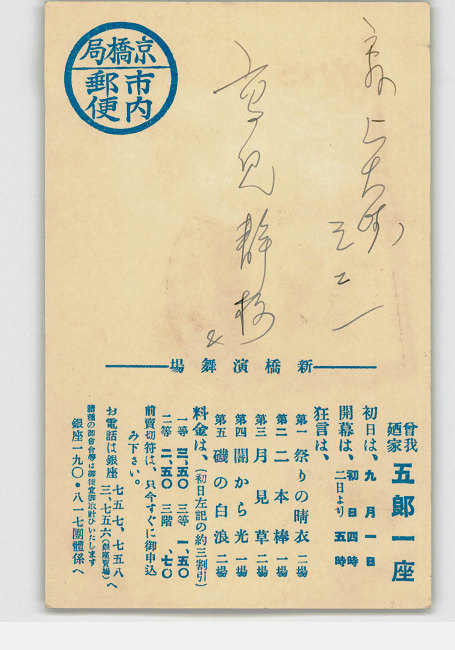 京橋局
市内
郵便
新橋演舞場
曾我廼家 五郎一座
初日は、九月一日
開幕は、初日四時
二日より五時
狂言は、
第一 祭りの晴衣 二場
第二 二本棒 一場
第三 月見草 二場
第四 闇から光 一場
第五 磯の白浪 二場
料金は、(初日左記の約三割引)
一等 三、五〇 三等 一、五〇
二等 二、五〇 三階 、七〇
前賣切符は、只今すぐに御申込
み下さい。
お電話は銀座 七五七、七五八
三、七五六(銀座賣場)へ
銀座一九〇・八一七團體係へ